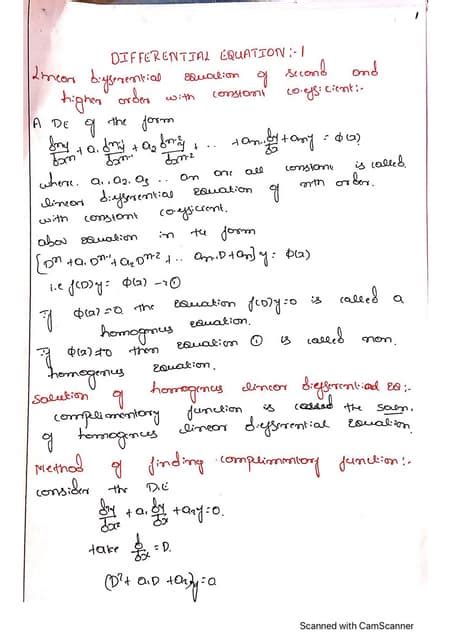 1
DIFFERENTIAL EQUATION:-1
Linear differential equation of second and
higher order with constant coefficient:-
A DE of the form
dⁿy/dxⁿ + a₁ dⁿ⁻¹y/dxⁿ⁻¹ + a₂ dⁿ⁻²y/dxⁿ⁻² + .. + aₙ₋₁ dy/dx + aₙy = ϕ(x)
where a₁, a₂, a₃ .. an are all constant is called
linear differential equation of nth order.
with constant coefficient.
abov equation in the form
[Dⁿ + a₁Dⁿ⁻¹ + a₂Dⁿ⁻² + .. aₙ₋₁D + aₙ]y = ϕ(x)
i.e f(D)y = ϕ(x) → ①
If ϕ(x) = 0 the equation f(D)y=0 is called a
homogenus equation.
If ϕ(x) ≠ 0 then equation ① is called non.
homogenus equation.
Solution of homogenus linear differential EQ:-
complimentory function is called the soln.
of homogenus linear differential equation
Method of finding complimentory function:-
consider the D.E
d²y/dx² + a₁ dy/dx + a₂y = 0.
take d/dx = D.
(D² + a₁D + a₂)y = 0
Scanned with CamScanner